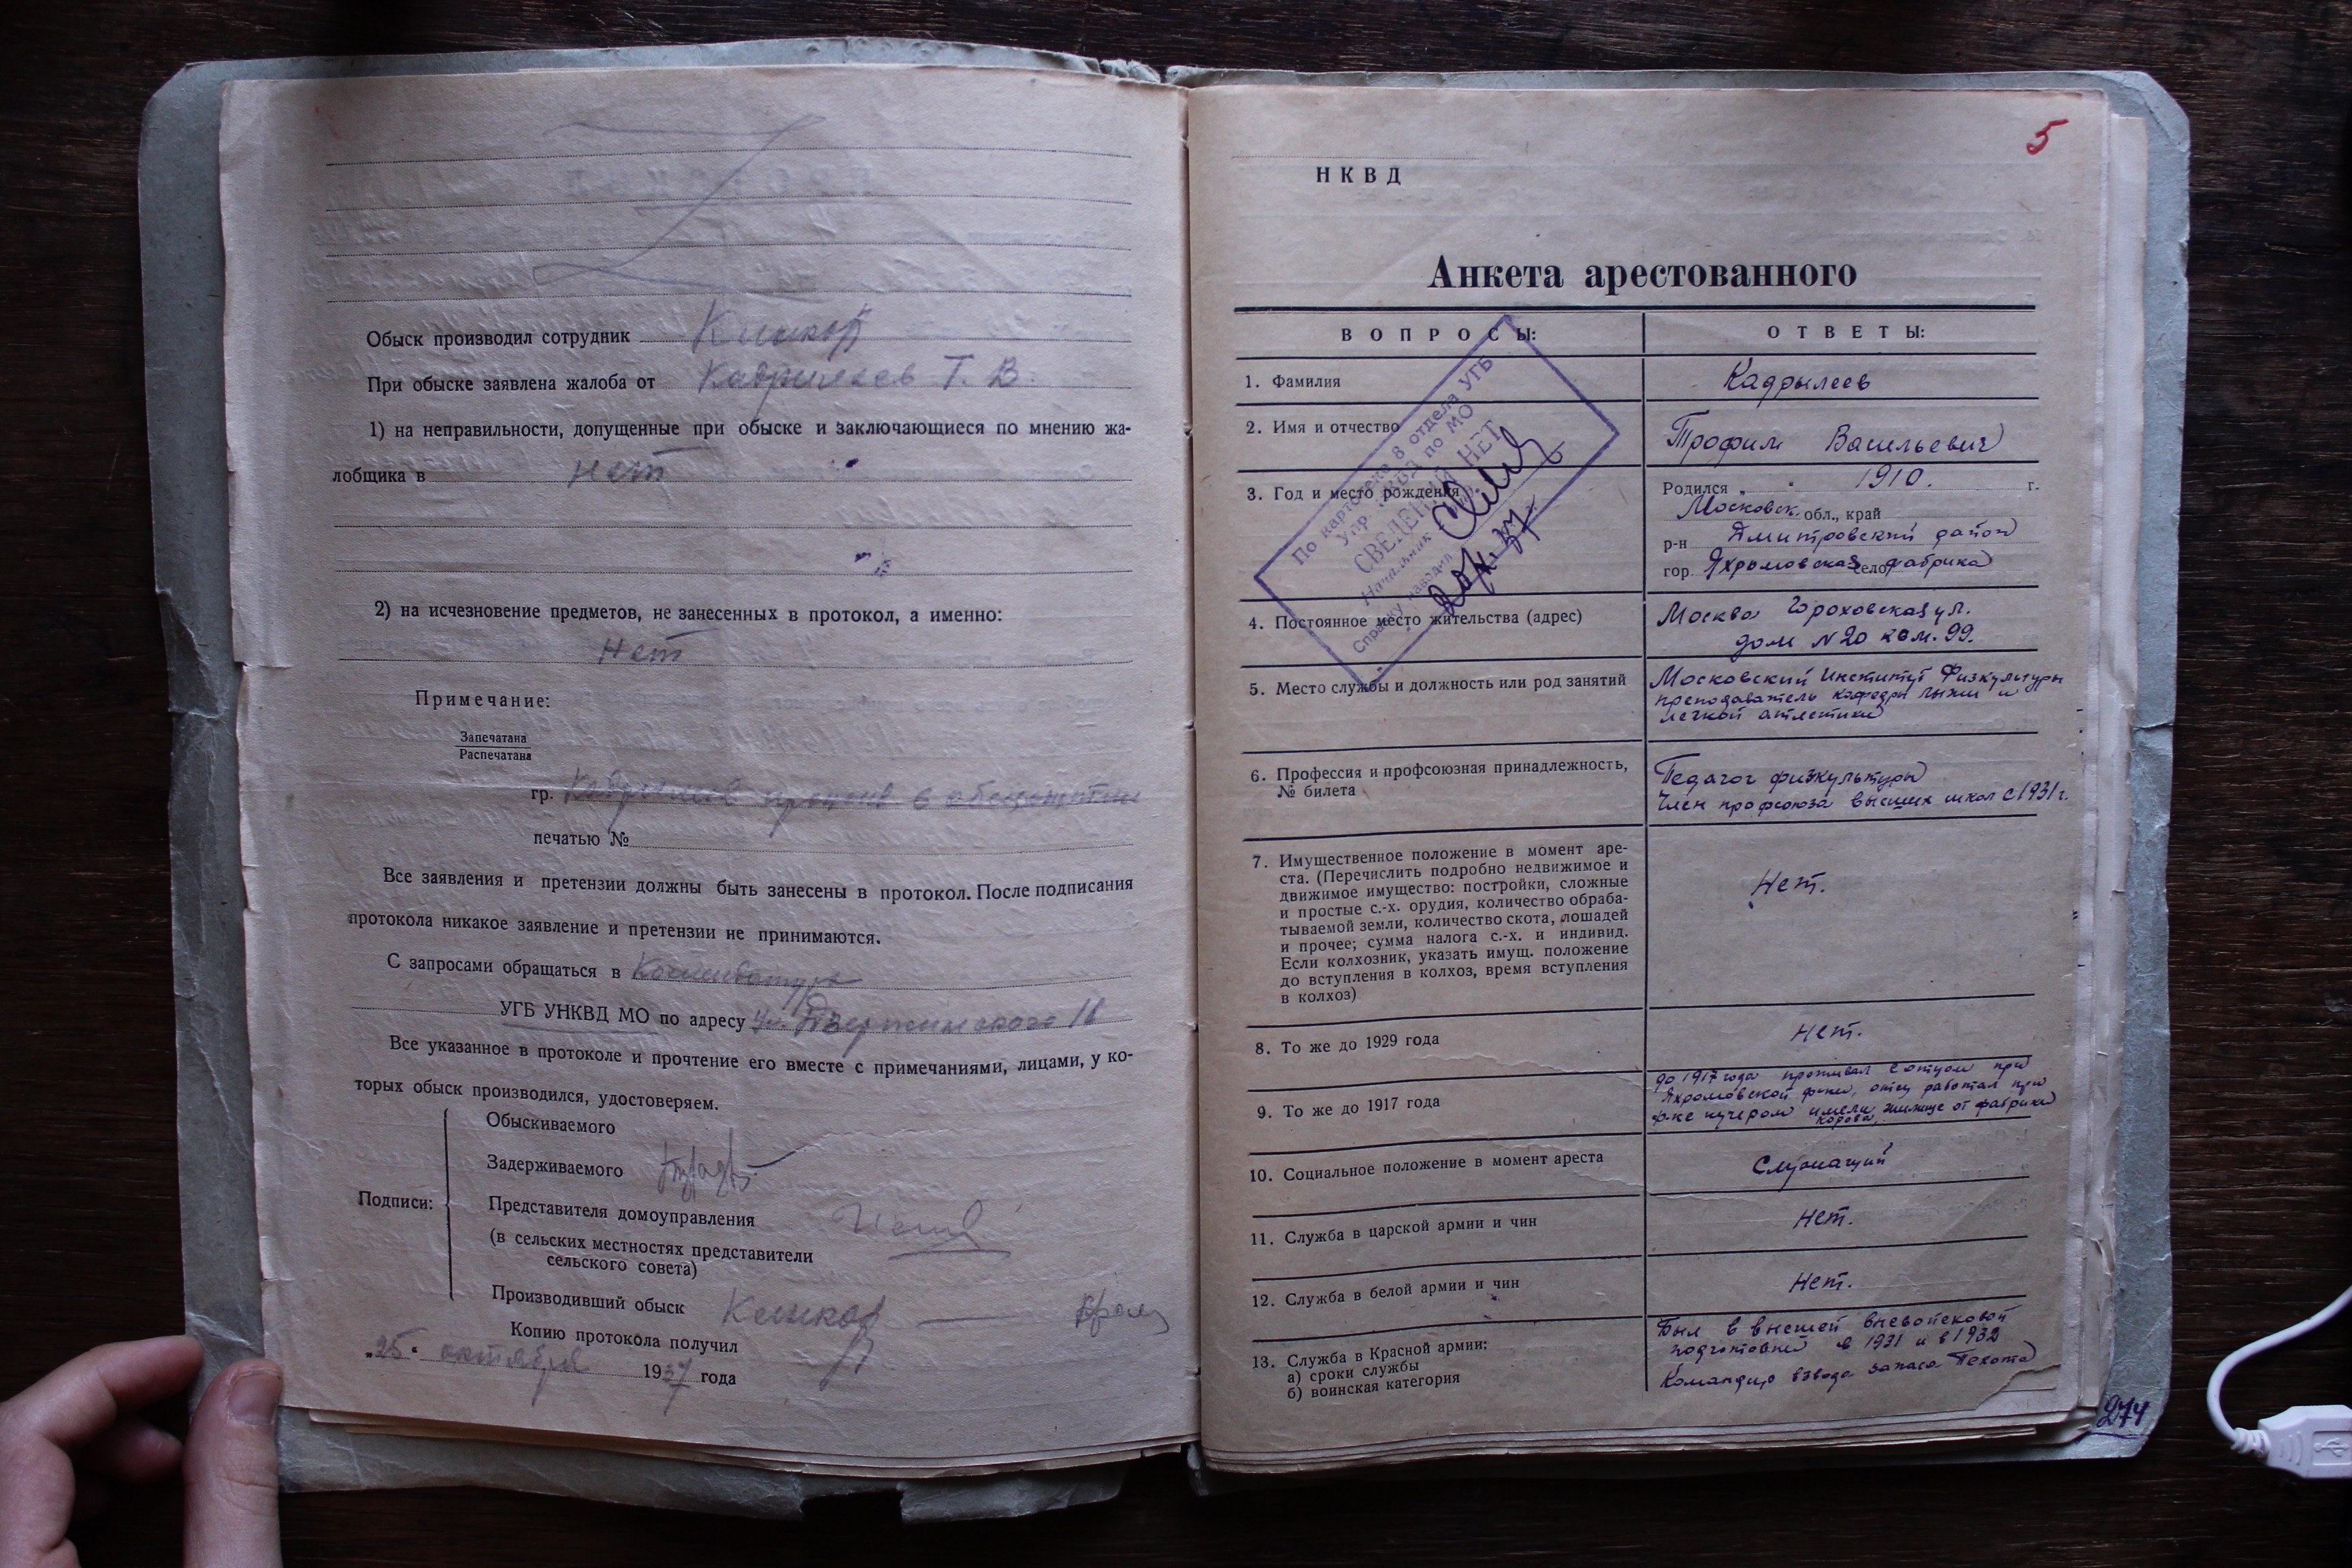 Обыск производил сотрудник
При обыске заявлена жалоба от Кадрилеев Т. В.
1) на неправильности, допущенные при обыске и заключающиеся по мнению жа-
лобщика в нет
2) на исчезновение предметов, не занесенных в протокол, а именно:
Нет
Примечание:
Запечатана
Распечатана
гр.
печатью №
Все заявления и претензии должны быть занесены в протокол. После подписания
протокола никакое заявление и претензии не принимаются.
С запросами обращаться в
УГБ УНКВД МО по адресу ул. Дзержинского 16
Все указанное в протоколе и прочтение его вместе с примечаниями, лицами, у ко-
торых обыск производился, удостоверяем.
Подписи:
Обыскиваемого
Задерживаемого
Представителя домоуправления
(в сельских местностях представители
сельского совета)
Производивший обыск
Копию протокола получил
„25“ октября 1937 года
5
НКВД
Анкета арестованного
ВОПРОСЫ: ОТВЕТЫ:
1. Фамилия Кадрылеев
2. Имя и отчество Трофим Васильевич
3. Год и место рождения Родился „ “ 1910. г.
Московск. обл., край
р-н Дмитровский район
гор. Яхромовская село фабрика
По картотеке 8 отдела УГБ
Упр. НКВД по МО
СВЕДЕНИЙ НЕТ
Начальник
Справку наводил
4. Постоянное место жительства (адрес) Москва Гороховская ул.
дом N 20 ком. 99.
5. Место службы и должность или род занятий Московский Институт Физкультуры
преподаватель кафедры лыжи и
легкой атлетики
6. Профессия и профсоюзная принадлежность, Педагог физкультуры
№ билета Член профсоюза высших школ с 1931 г.
7. Имущественное положение в момент аре-
ста. (Перечислить подробно недвижимое и
движимое имущество: постройки, сложные
и простые с.-х. орудия, количество обраба-
тываемой земли, количество скота, лошадей
и прочее; сумма налога с.-х. и индивид.
Если колхозник, указать имущ. положение
до вступления в колхоз, время вступления
в колхоз)
Нет.
8. То же до 1929 года Нет.
9. То же до 1917 года
до 1917 года проживал с отцом при
Яхромовской ф-ки, отец работал при
ф-ке кучером имели жилище от фабрики
корова
10. Социальное положение в момент ареста Служащий
11. Служба в царской армии и чин Нет.
12. Служба в белой армии и чин Нет.
13. Служба в Красной армии:
а) сроки службы
б) воинская категория
Был в высшей вневойсковой
подготовке в 1931 и в 1932
Командир взвода запаса Пехота
274